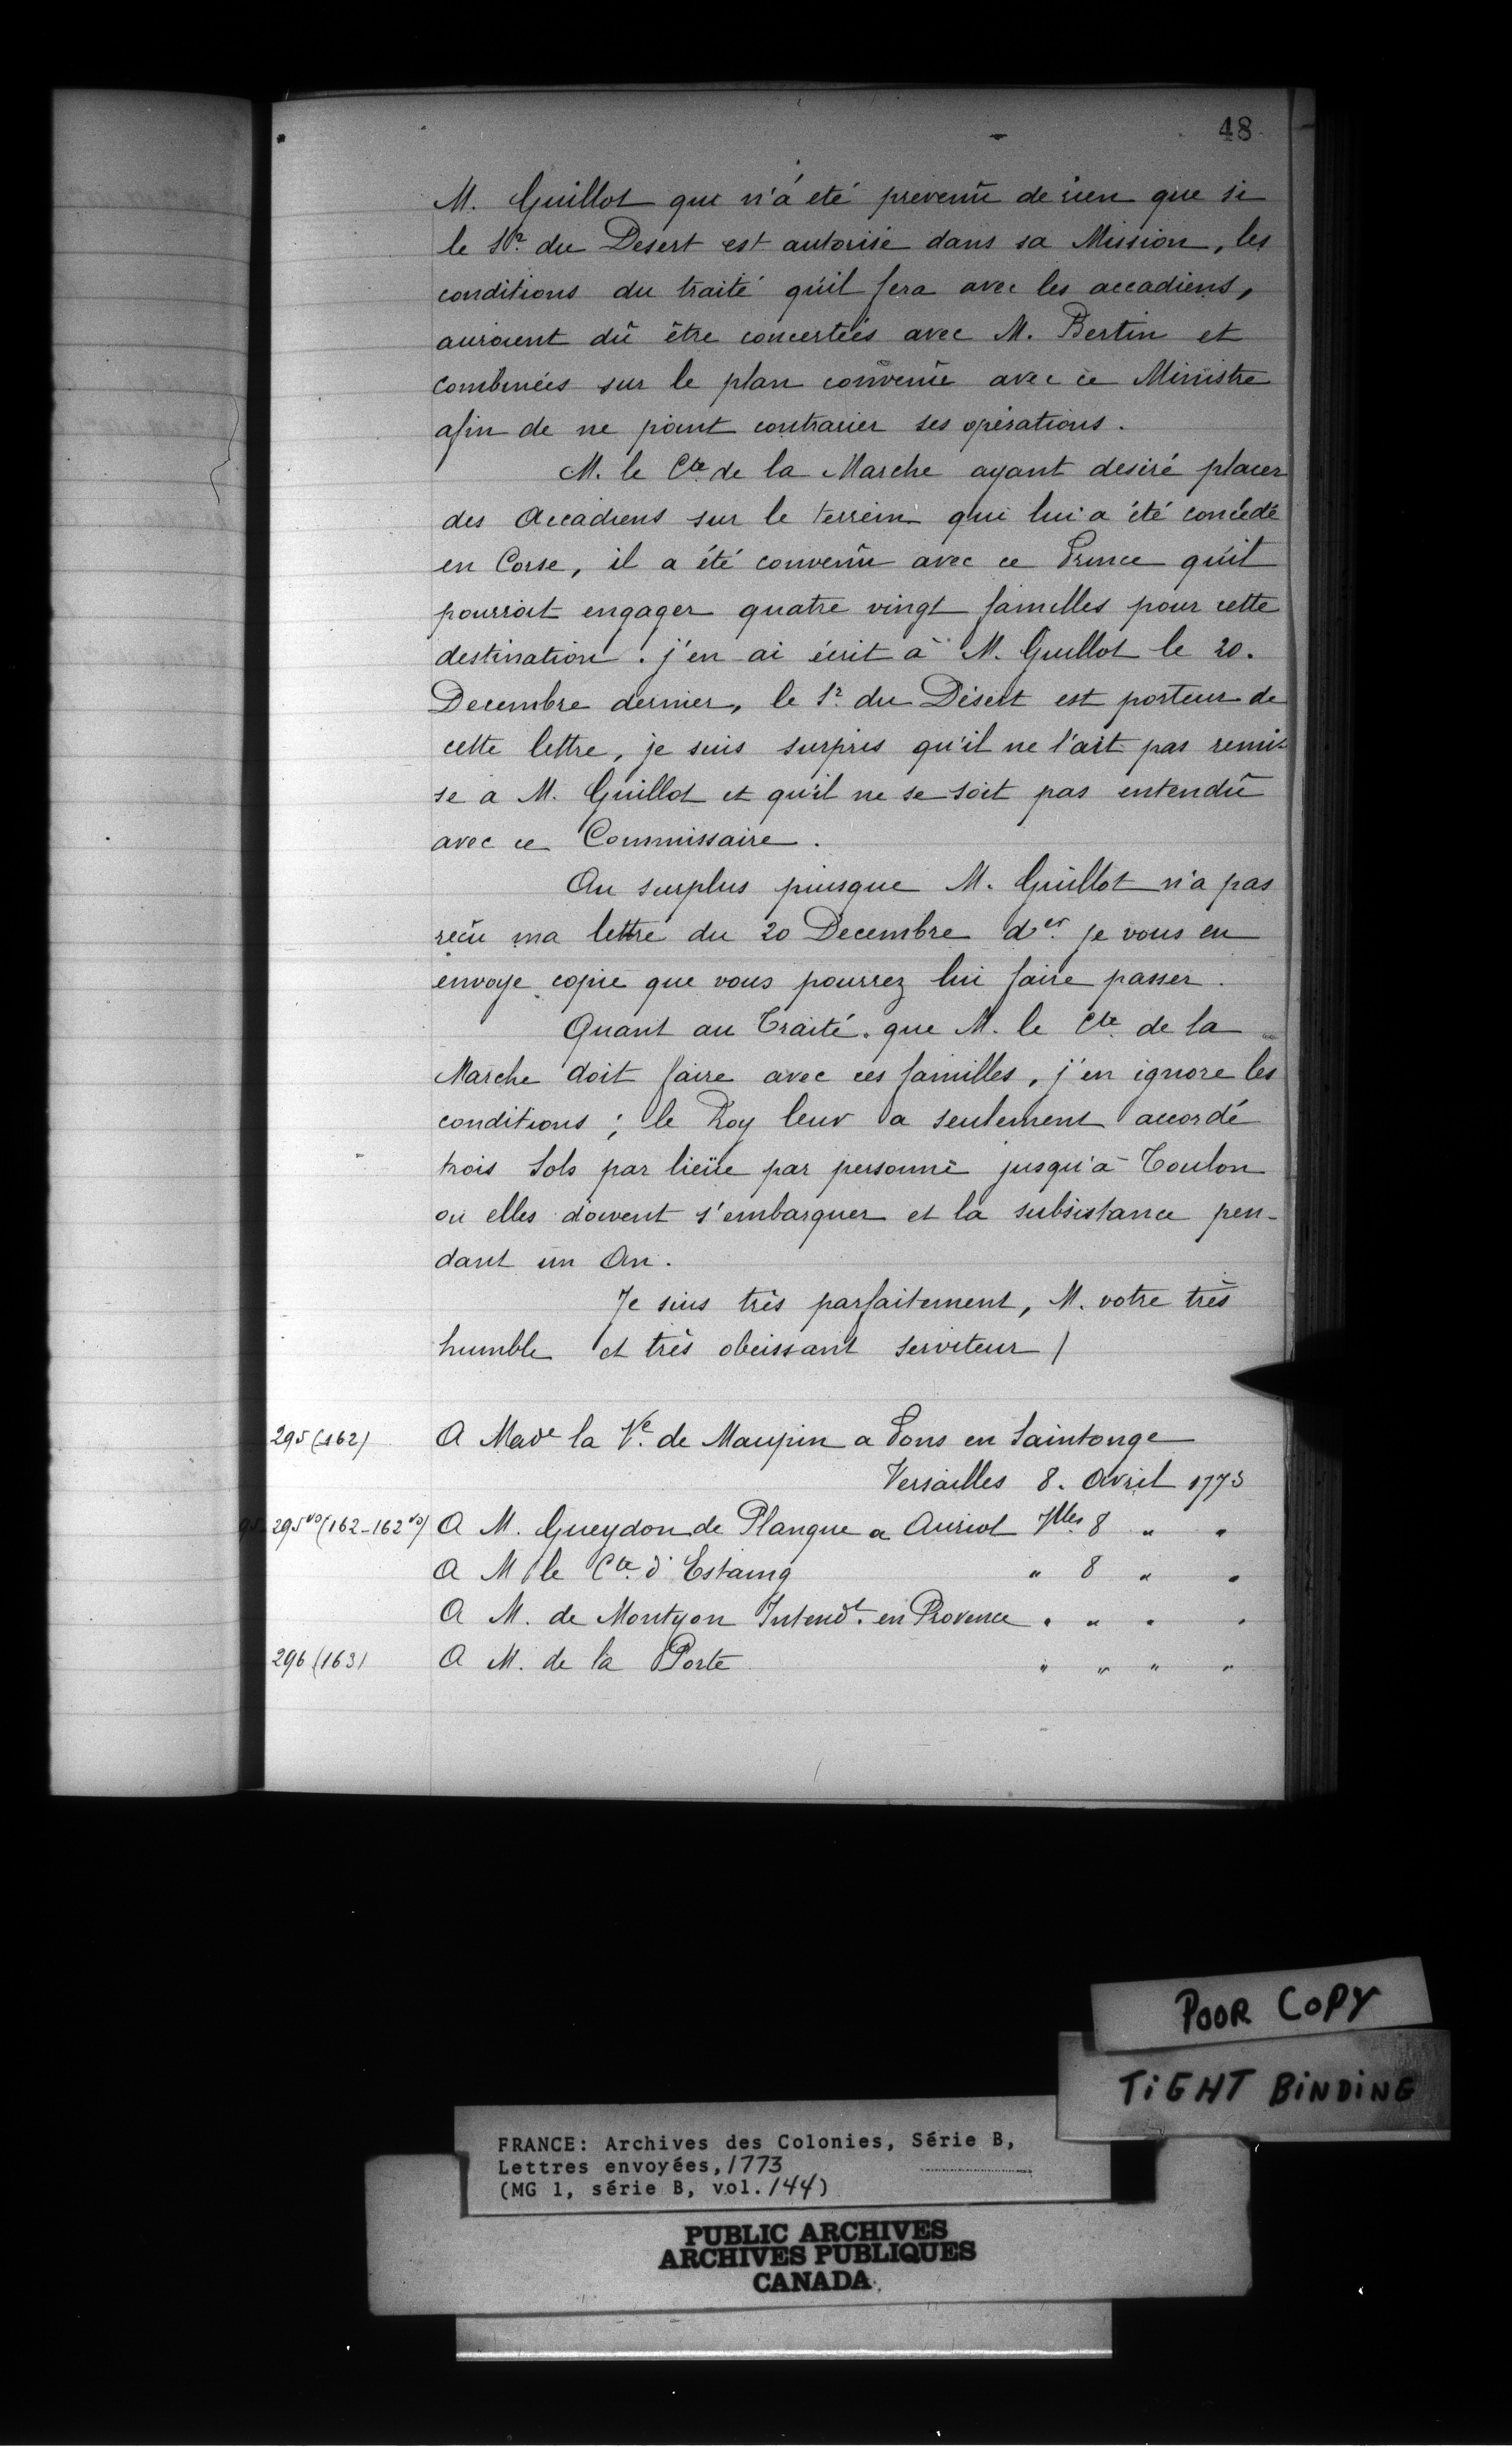 48
M. Guillot qui n'a été prevenû de rien que si
le Sr. du Desert est autorisé dans sa Mission, les
conditions du traité qu'il fera avec les accadiens,
auroient dû être concertées avec M. Bertin et
combinées sur le plan convenû avec ce Ministre
afin de ne point contrarier ses opérations.
M. le Cte. de la Marche ayant desiré placer
des Accadiens sur le terrein qui lui a été concédé
en Corse, il a été convenû avec ce Prince qu'il
pourroit engager quatre vingt familles pour cette
destination. j'en ai écrit à M. Guillot le 20.
Decembre dernier, le Sr. du Désert est porteur de
cette lettre, je suis surpris qu'il ne l'ait pas remi-
se a M. Guillot et qu'il ne se soit pas entendû
avec ce Commissaire.
Au surplus puisque M. Guillot n'a pas
reçu ma lettre du 20 Decembre der. je vous en
envoye copie que vous pourrez lui faire passer.
Quant au Traité que M. le Cte. de la
Marche doit faire avec ces familles, j'en ignore les
conditions; le Roy leur a seulement accordé
trois Sols par lieüe par personne jusqu'à Toulon
ou elles doivent s'embarquer et la subsistance pen-
dant un An.
Je suis très parfaitement, M. votre très
humble et très obeissant serviteur /
295 (162) A Made la Ve. de Maupin a Pons en Saintonge
Versailles 8. Avril 1773
295vo (162-162vo) A M. Gueydon de Planque a Auriol Vlles 8 " "
A M le Cte. d'Estaing " 8 " "
A M. de Montyon Intendt. en Provence " " " "
296 (163) A M. de la Porte " " " "
POOR COPY
TIGHT BINDING
FRANCE: Archives des Colonies, Série B,
Lettres envoyées, 1773
(MG 1, série B, vol. 144)
PUBLIC ARCHIVES
ARCHIVES PUBLIQUES
CANADA